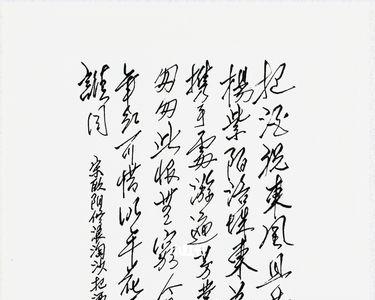 把酒祝東風且
楊紫陌洛城東
攜手處游遍芳叢
匆匆此恨無窮今
年紅可惜明年花
誰同
宋歐陽修浪淘沙把酒